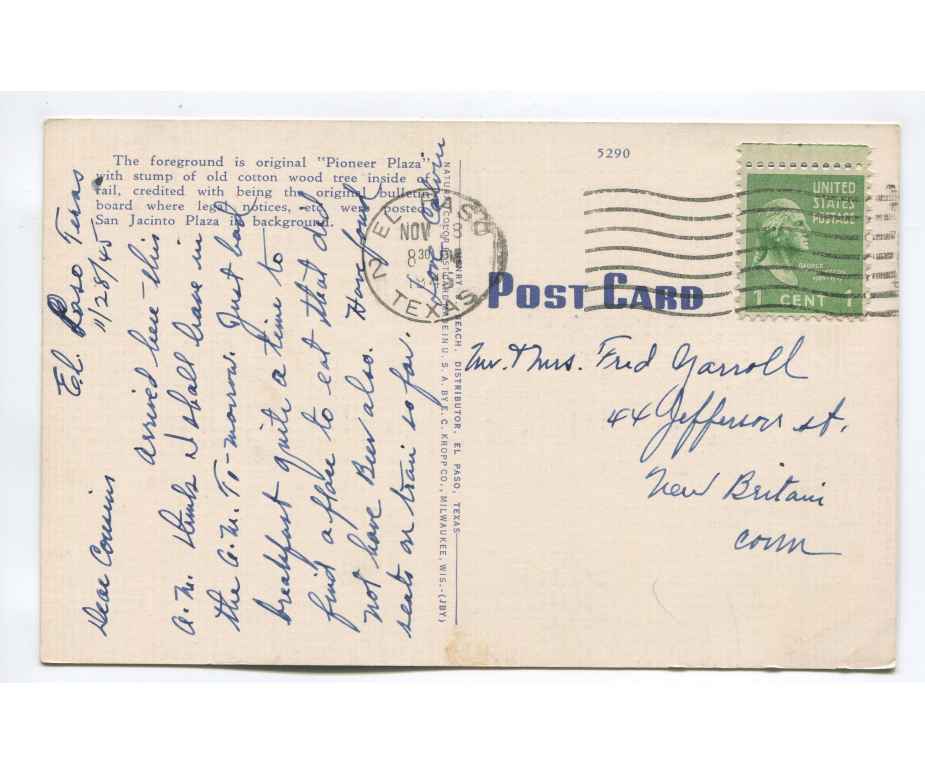 The foreground is original "Pioneer Plaza"
with stump of old cotton wood tree inside of
rail, credited with being the original bulletin
board where legal notices, etc. were posted.
San Jacinto Plaza in background.
El Paso Texas
11/28/45
Dear Cousins
Arrived here this
a.m. think I shall leave in
the a.m. To-morrow. Just had
breakfast quite a time to
find a place to eat that did
not have Beer also. Have found
seats on train so far. Love
NATURAL COLOR POST CARD MADE IN U. S. A. BY E. C. KROPP CO., MILWAUKEE, WIS.—(JBY)
BEACH, DISTRIBUTOR, EL PASO, TEXAS
5290
EL PASO
NOV 28
8 30 PM
TEXAS
2
UNITED
STATES
POSTAGE
GEORGE
1 CENT 1
POST CARD
Mr. & Mrs. Fred Yarroll
44 Jefferson st.
New Britain
Conn